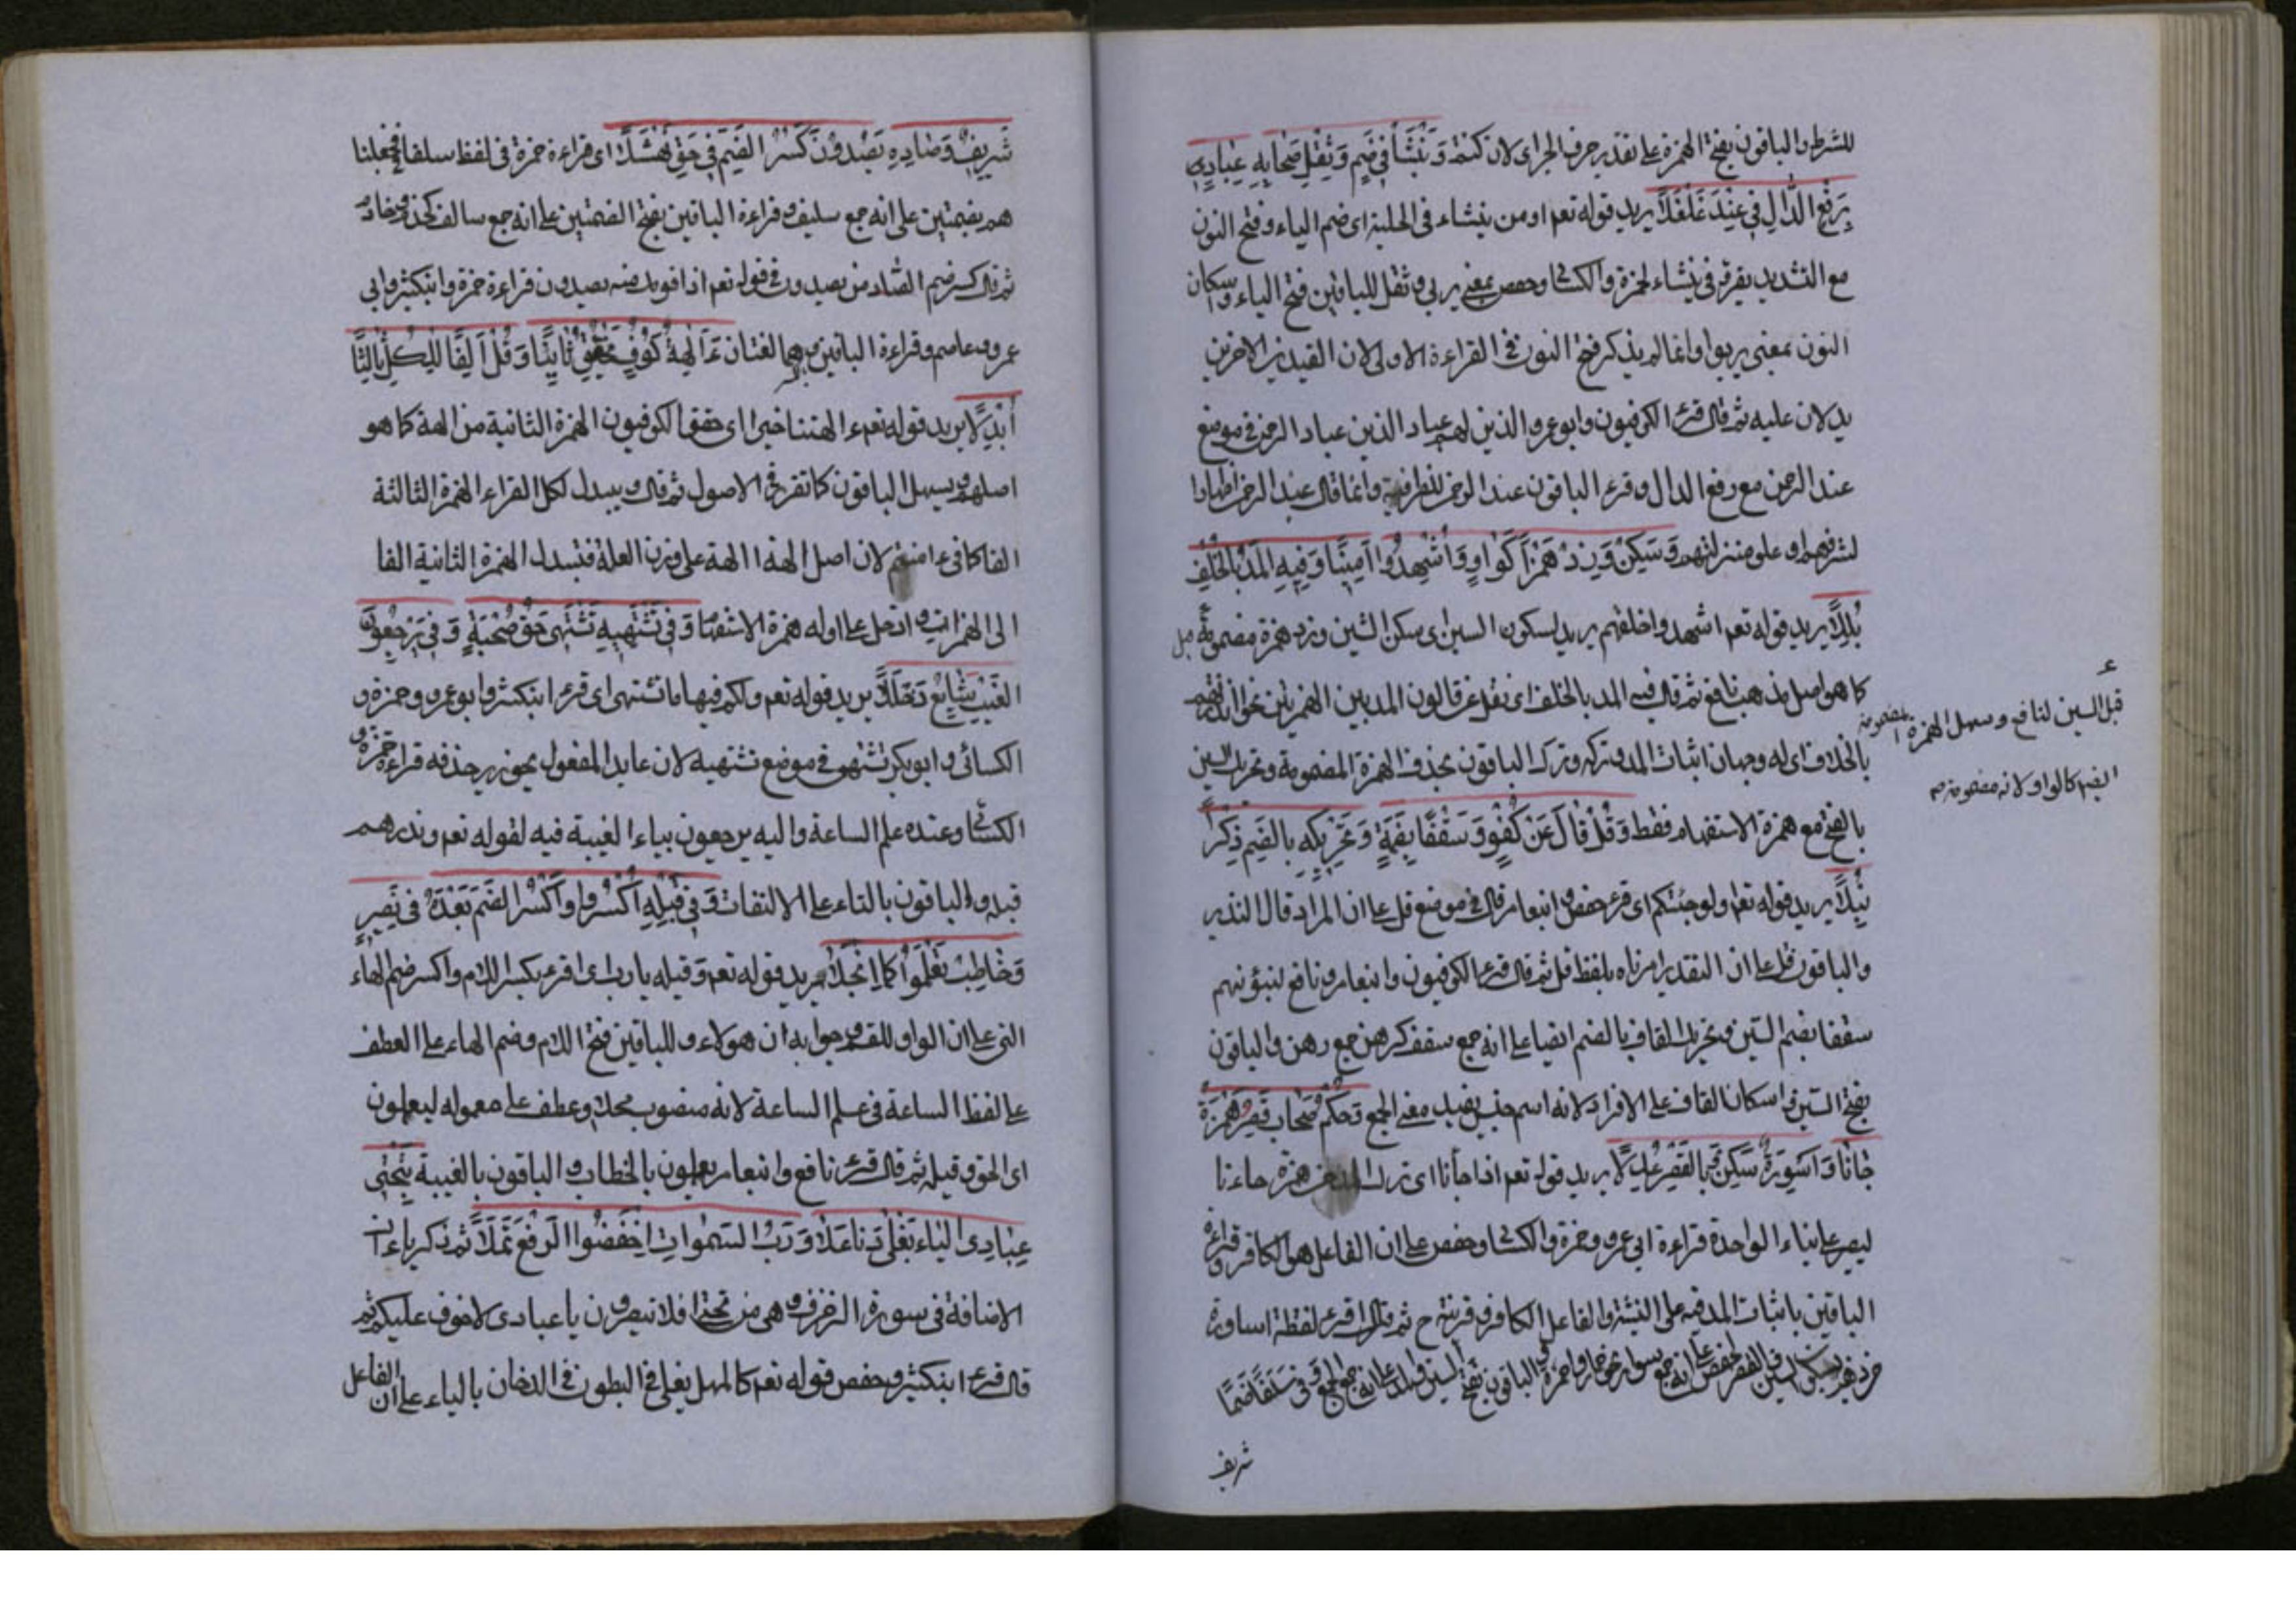 للشرط والباقون بفتح الهمزة على تقدير حرف الجر اى لان كنتم وَيَنْشَأُ فِي ضَمٍّ وَثِقْلٍ صِحَابُهُ عِبَادُ
بِرَفْعِ الدَّالِ فِي عِنْدَ غَلْغَلَا يريد قوله تعم اومن ينشاء فى الحلية اى ضم الياء وفتح النون
مع التشديد يقرء فى ينشاء لحمزة والكسائى وحفص بمعنى يربى وثقل للباقين فتح الياء واسكان
النون بمعنى يربوا وانما لم يذكر فتح النون فى القراءة الاولى لان القيدين الاخرين
يدلان عليه ثم قال قرء الكوفيون وابو عمرو الذين هم عباد الرحمن فى موضع
عند الرحمن مع رفع الدال وقرء الباقون عند الرحمن للظرفية وانما قال عند الرحمن اظهارا
لشرفهم وعلو منزلتهم وَسَكِّنْ وَزِدْ هَمْزًا كَوَاوٍ وَأُشْهِدُوا أَمِينًا وَفِيهِ الْمَدُّ بِالْخُلْفِ
بَلَّلَا يريد قوله تعم اشهدوا خلقهم يريد بسكون السين اى سكن الشين وزد همزة مضمومة
كما هو اصل مذهب نافع ثم قال فيه المد بالخلف اى نقل عن قالون المد بين الهمزتين نحو
بالخلاف اى له وجهان اثبات المد وتركه وترك الباقون بحذف الهمزة المضمومة وتحريك الشين
بالفتح مع همزة الاستفهام فقط وَقُلْ قَالَ عَنْ كُفْوٍ وَسَقْفًا بِضَمِّهِ وَتَحْرِيكِهِ بِالضَّمِّ ذَكَّرَ
نْبَلَا يريد قوله تعم اولو جئتكم اى قرء حفص وابن عامر قال فى موضع قل على ان المراد قال النذير
والباقون قل على ان التقدير امرناه بلفظ قل ثم قال قرء الكوفيون وابن عامر ونافع لبيوتهم
سقفا بضم السين وتحريك القاف بالضم ايضا على انه جمع سقف كرهن جمع رهن والباقون
بفتح السين واسكان القاف على الافراد لانه اسم جنس يفيد معنى الجمع وَحُكْمُ صِحَابٍ قَصْرُ هَمْزَةِ
جَاءَنَا وَأَسْوِرَةٌ سَكِّنْ وَبِالْقَصْرِ عُدِّلَا يريد قوله تعم اذا جأنا اى ترك المد من همزة جاءنا
ليصير على بناء الواحدة قراءة ابى عمرو وحمزة والكسائى وحفص على ان الفاعل هو الكافر وقراءة
الباقين باثبات المد فيه على التثنية والفاعل الكافر وقرينه ح ثم قال قرء لفظة اساورة
وَفِي سَلَفًا ضَمَّا
شريف
قبل السين لنافع وسهل الهمزة المضمومة
كالواو لانه مضموم
شَرِيفٍ وَصَادُهُ يَصُدُّونَ كَسْرُ الضَّمِّ فِي حَقِّ نَهْشَلَا اى قراءة حمزة فى لفظ سلفا فجعلنا
هم بضمتين على انه جمع سليف وقراءة الباقين بفتح الضمتين على انه جمع سالف كخدم وخادم
ثم قال كسر ضم الصاد من يصدون فى قوله تعم اذا قومك منه يصدون قراءة حمزة وابن كثير وابى
عمرو وعاصم وقراءة الباقين هما لغتان ءَآلِهَةٌ كُوفٍ يُحَقِّقُ ثَانِيًا وَقُلْ أَلِفًا لِلْكُلِّ ثَالِثًا
أُبْدِلَا يريد قوله تعم ءالهتنا خير اى حقق الكوفيون الهمزة الثانية من الهة كما هو
اصلهم ويسهل الباقون كما تقرر فى الاصول ثم قال ويبدل لكل القراء الهمزة الثالثة
الفا كما فى ءامنتم لان اصل الهة االهة على وزن افعلة فتبدل الهمزة الثانية الفا
ادخل على اوله همزة الاستفهام وَفِي تَشْتَهِيهِ تَشْتَهِي حَقُّ صُحْبَةٍ وَفِي يُرْجَعُونَ
الْغَيْبُ شَايَعَ دُخْلُلَا يريد قوله تعم ولكم فيها ما تشتهى اى قرء ابن كثير وابو عمرو وحمزة و
الكسائى وابو بكر تشتهى فى موضع تشتهيه لان عايد المفعول يجوز حذفه قراءة حمزة و
الكسائى وعنده علم الساعة واليه يرجعون بياء الغيبة فيه لقوله تعم وذرهم
قبله والباقون بالتاء على الالتفات وَفِي قِيلَهُ اكْسِرْ وَاكْسِرِ الضَّمَّ بَعْدَهُ فِي نَصِيرٍ
وَخَاطِبْ تَعْلَمُوا كَمَا انْجَلَا يريد قوله تعم وقيله يا رب اى اقرء بكسر اللام واكسر ضم الهاء
التى على ان الواو للقسم وجوابه ان هولاء وللباقين فتح اللام وضم الهاء على العطف
على لفظ الساعة فى علم الساعة لانه منصوب محلا وعطف على معموله ليعلمون
اى الحق وقيله ثم قال قرء نافع وابن عامر يعلمون بالخطاب والباقون بالغيبة بِتَحْتِي
عِبَادِي الْيَاءُ يَغْلِي دَنَا عُلًا وَرَبُّ السَّمٰوَاتِ اخْفِضُوا الرَّفْعَ ثُمَّلَا ثم ذكر ياءات
الاضافة فى سورة الزخرف وهى من تحتى افلا تبصرون يا عبادى لا خوف عليكم ثم
قال قرء ابن كثير وحفص قوله تعم كالمهل يغلى فى البطون فى الدخان بالياء على ان الفاعل